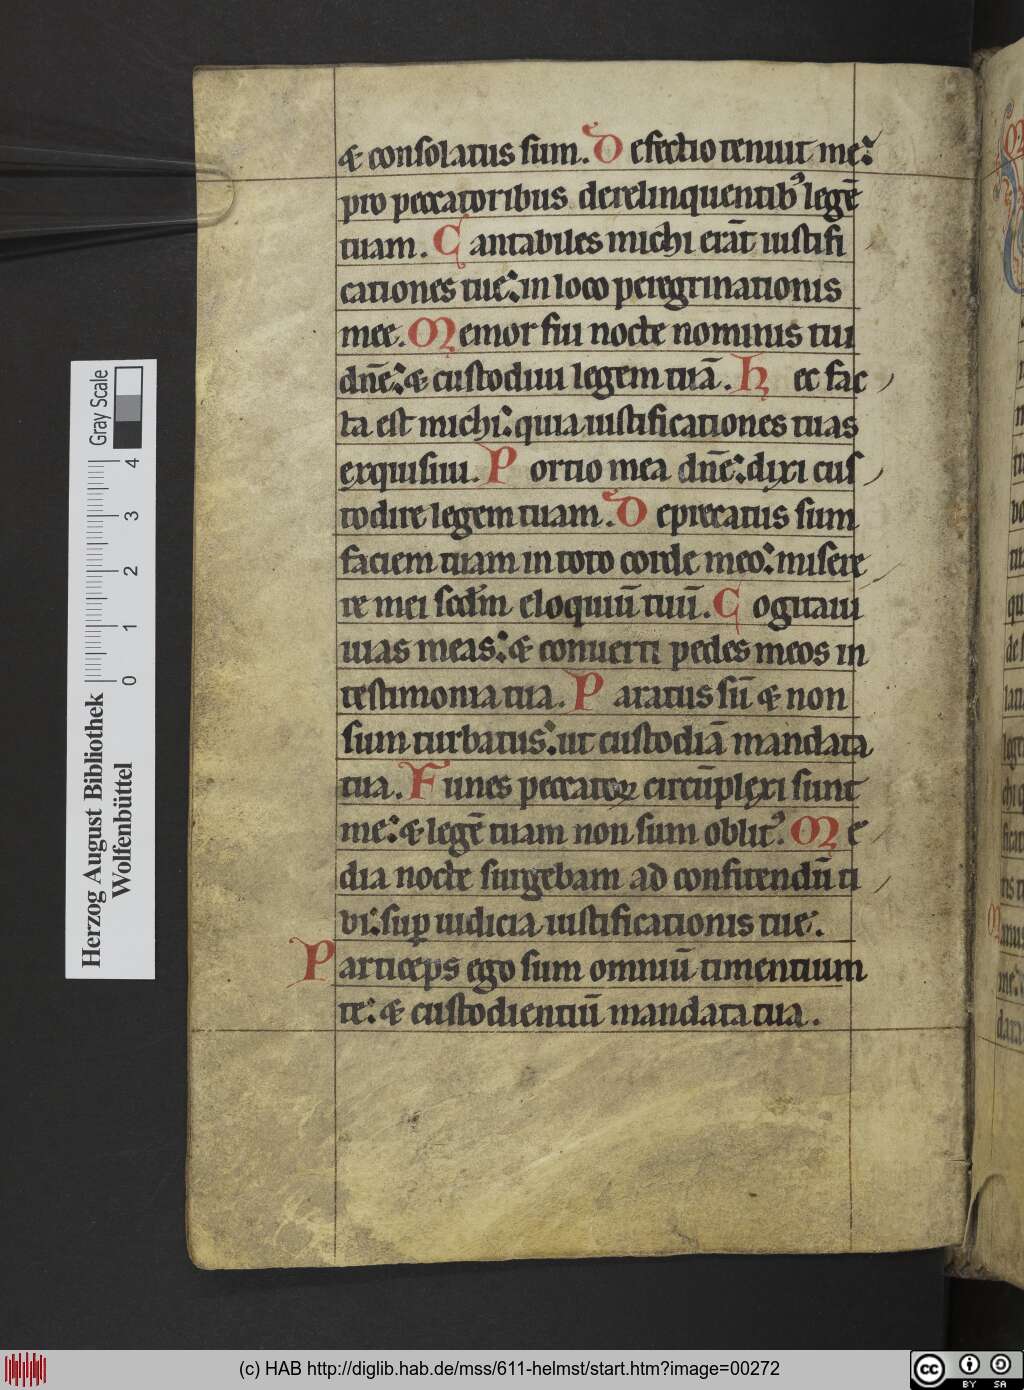 & consolatus sum. Defectio tenuit me:
pro peccatoribus derelinquentibꝰ legē
tuam. Cantabiles michi erāt iustifi
cationes tue: in loco peregrinationis
mee. Memor fui nocte nominis tui
dn̄e: & custodiui legem tuā. Hec fac
ta est michi: quia iustificationes tuas
exquisiui. Portio mea dn̄e: dixi cus
todire legem tuam. Deprecatus sum
faciem tuam in toto corde meo: misere
re mei scd̄m eloquiū tuū. Cogitaui
uias meas: & conuerti pedes meos in
testimonia tua. Paratus sū & non
sum turbatus: ut custodiā mandata
tua. Funes peccatoꝝ circūplexi sunt
me: & legē tuam non sum oblitꝰ. Me
dia nocte surgebam ad confitendū ti
bi: suꝑ iudicia iustificationis tue.
Particeps ego sum omniū timentium
te: & custodientiū mandata tua.
Herzog August Bibliothek
Wolfenbüttel
0 1 2 3 4
Gray Scale
(c) HAB http://diglib.hab.de/mss/611-helmst/start.htm?image=00272
cc BY SA